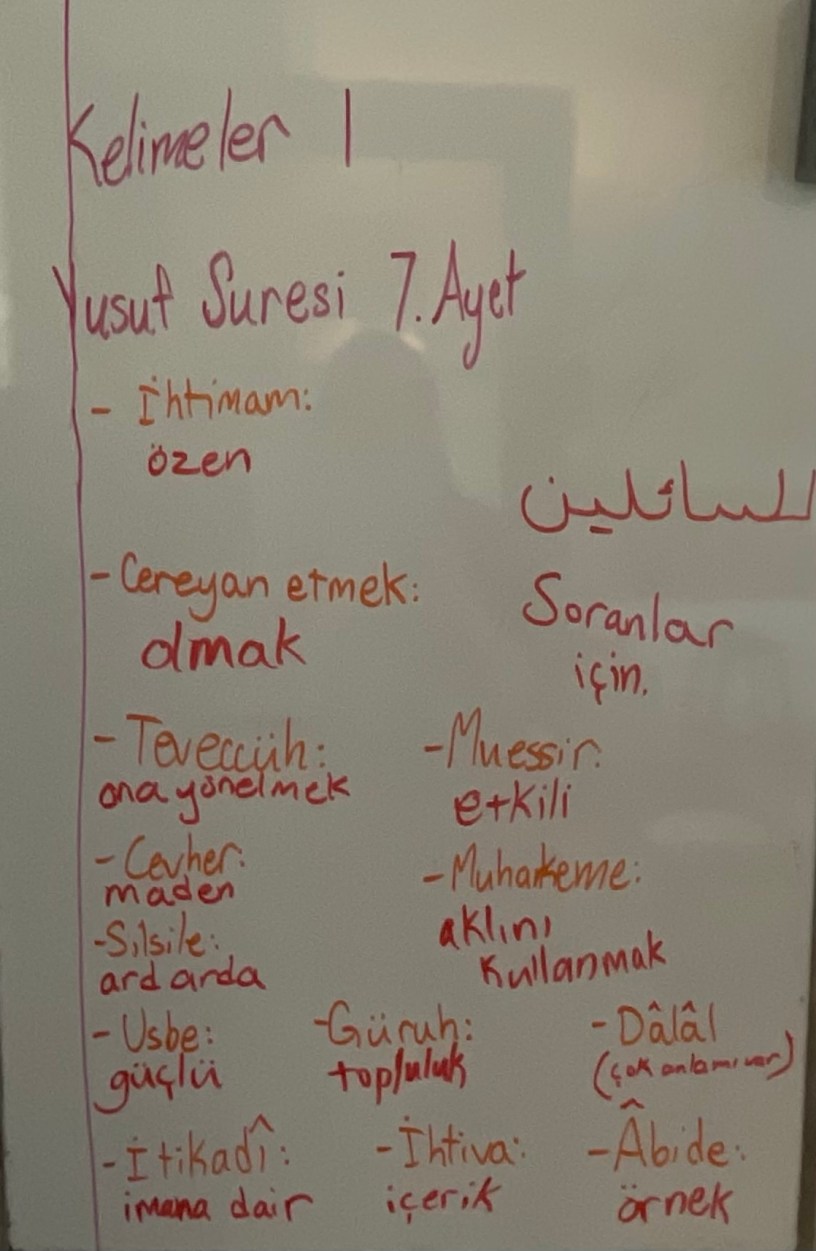 Kelimeler 1
Yusuf Suresi 7. Ayet
- İhtimam:
özen
للسائلين
Soranlar
için.
- Cereyan etmek:
olmak
- Teveccüh:
ona yönelmek
- Muessir:
etkili
- Cevher:
maden
- Muhakeme:
aklını
kullanmak
- Silsile:
ard arda
- Usbe:
güçlü
- Güruh:
topluluk
- Dâlâl
(çok anlamı var)
- İtikadî:
imana dair
- İhtiva:
içerik
- Âbide:
örnek